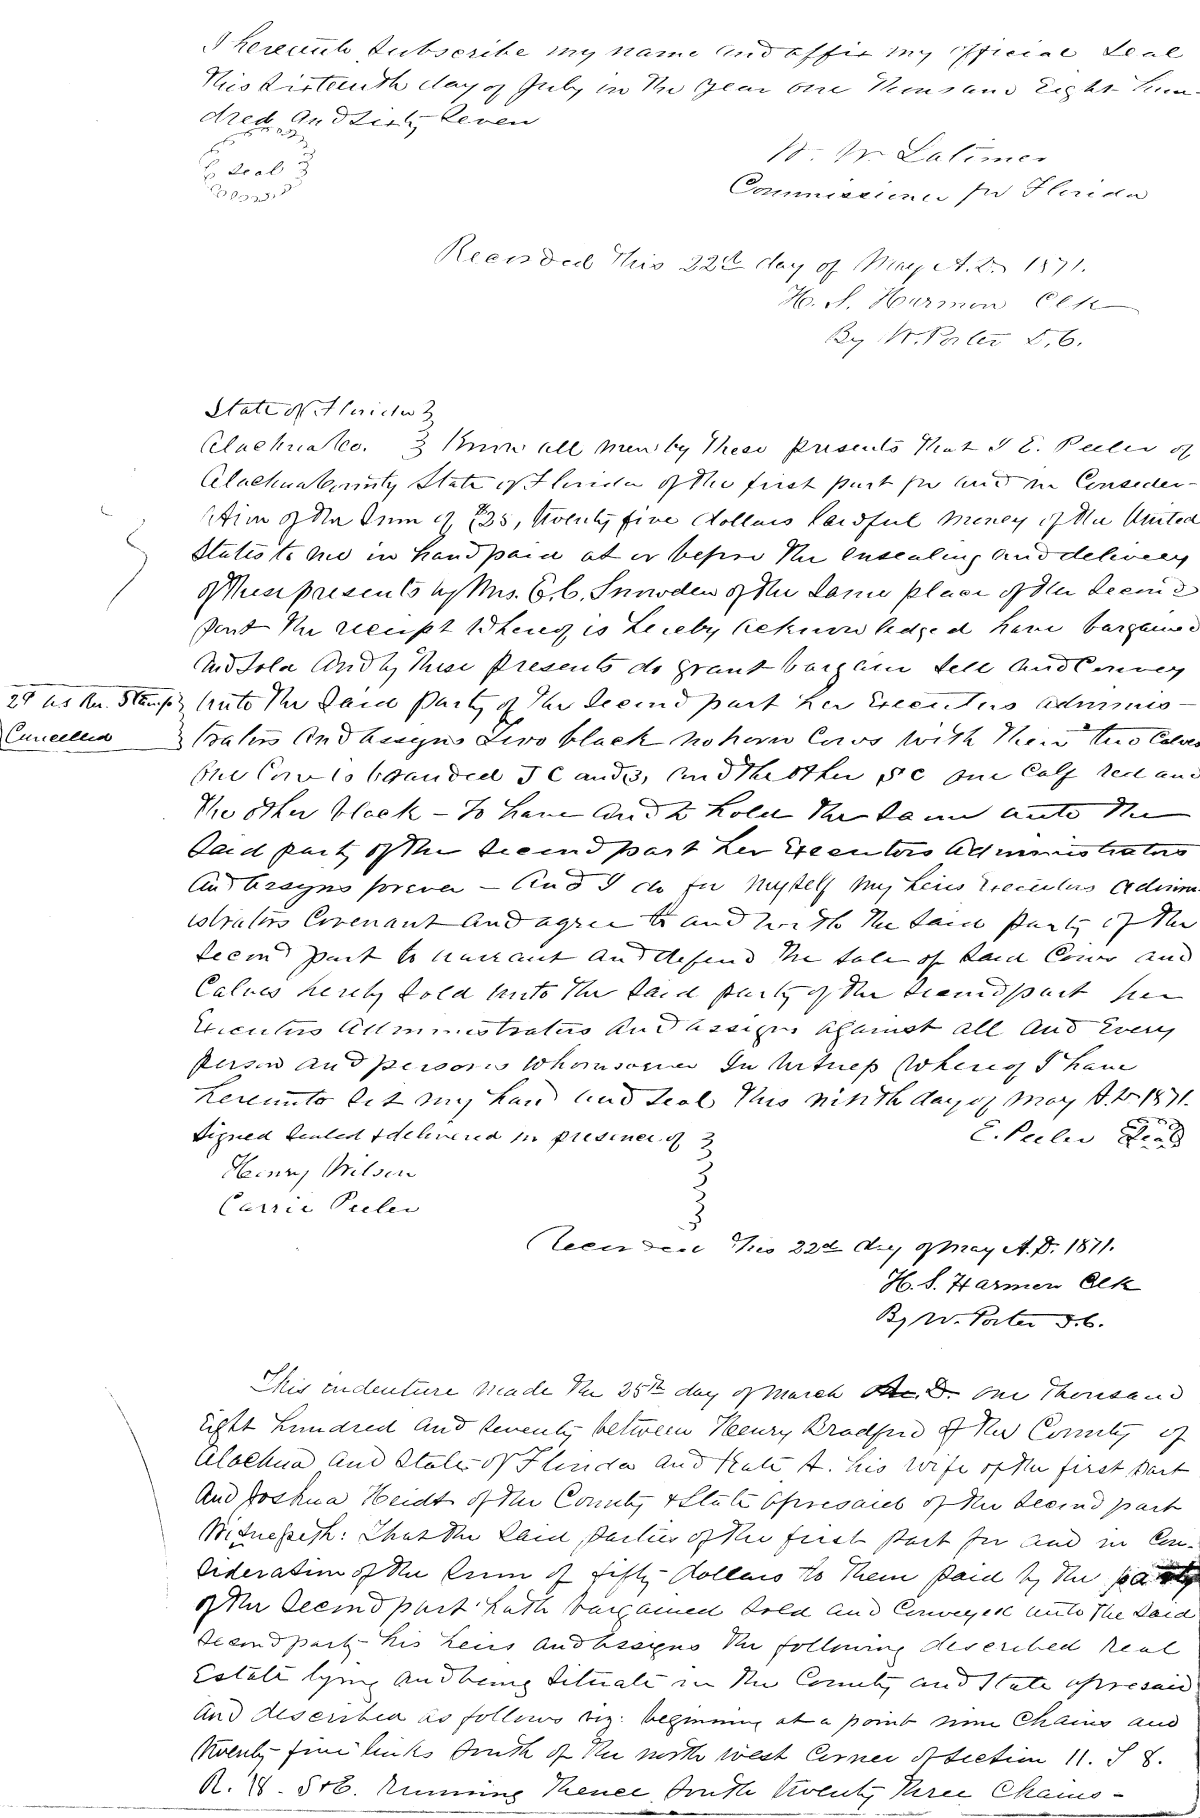 I hereunto Subscribe my name and affix my official Seal
this Sixteenth day of July in the Year one thousand Eight hun-
dred and Sixty Seven
Seal
W. W. Latimer
Commissioner for Florida
Recorded this 22d day of May A.D. 1871.
H. S. Harmon Clk
By W. Porter D.C.
State of Florida
Alachua Co. Know all men by these presents that I E. Peeler of
Alachua County State of Florida of the first part for and in Consider-
ation of the Sum of $25, twenty five dollars lawful money of the United
States to me in hand paid at or before the ensealing and delivery
of these presents by Mrs. E. C. Snowden of the Same place of the Second
part the receipt whereof is hereby acknowledged have bargained
and Sold And by these presents do grant bargain Sell and Convey
unto the Said party of the Second part her Executors adminis-
Stamps
Cancelled
trators and assigns Two black no horn Cows with their two Calves
One Cow is branded J C and 3, and the other S C one Calf red and
the other black - To have and to hold the Same unto the
Said party of the Second part her Executors Administrators
and assigns forever - And I do for myself my heirs Executors admin-
istrators Covenant and agree to and with the Said party of the
Second part to warrant and defend the Sale of Said Cows and
Calves hereby Sold unto the Said party of the Second part her
Executors Administrators and assigns against all and Every
person and persons whomsoever In Witness Whereof I have
hereunto Set my hand and Seal this ninth day of May A.D. 1871.
Signed Sealed & delivered in presence of
E. Peeler Seal
Henry Wilson
Carrie Peeler
Recorded this 22d day of May A.D. 1871.
H. S. Harmon Clk
By W. Porter D.C.
This indenture made the 25th day of March A.D. one thousand
Eight hundred and Seventy between Henry Bradford of the County of
Alachua and State of Florida and Kate A. his wife of the first part
And Joshua Heidt of the County & State aforesaid of the Second part
Witnesseth: That the Said parties of the first part for and in Con-
sideration of the Sum of fifty dollars to them paid by the party
of the Second part hath bargained Sold and Conveyed unto the Said
Second party his heirs and assigns the following described real
Estate lying and being Situate in the County and State aforesaid
and described as follows viz: beginning at a point nine Chains and
twenty five links South of the north west Corner of Section 11. T 8.
R. 18. S & E. running thence South twenty three Chains -